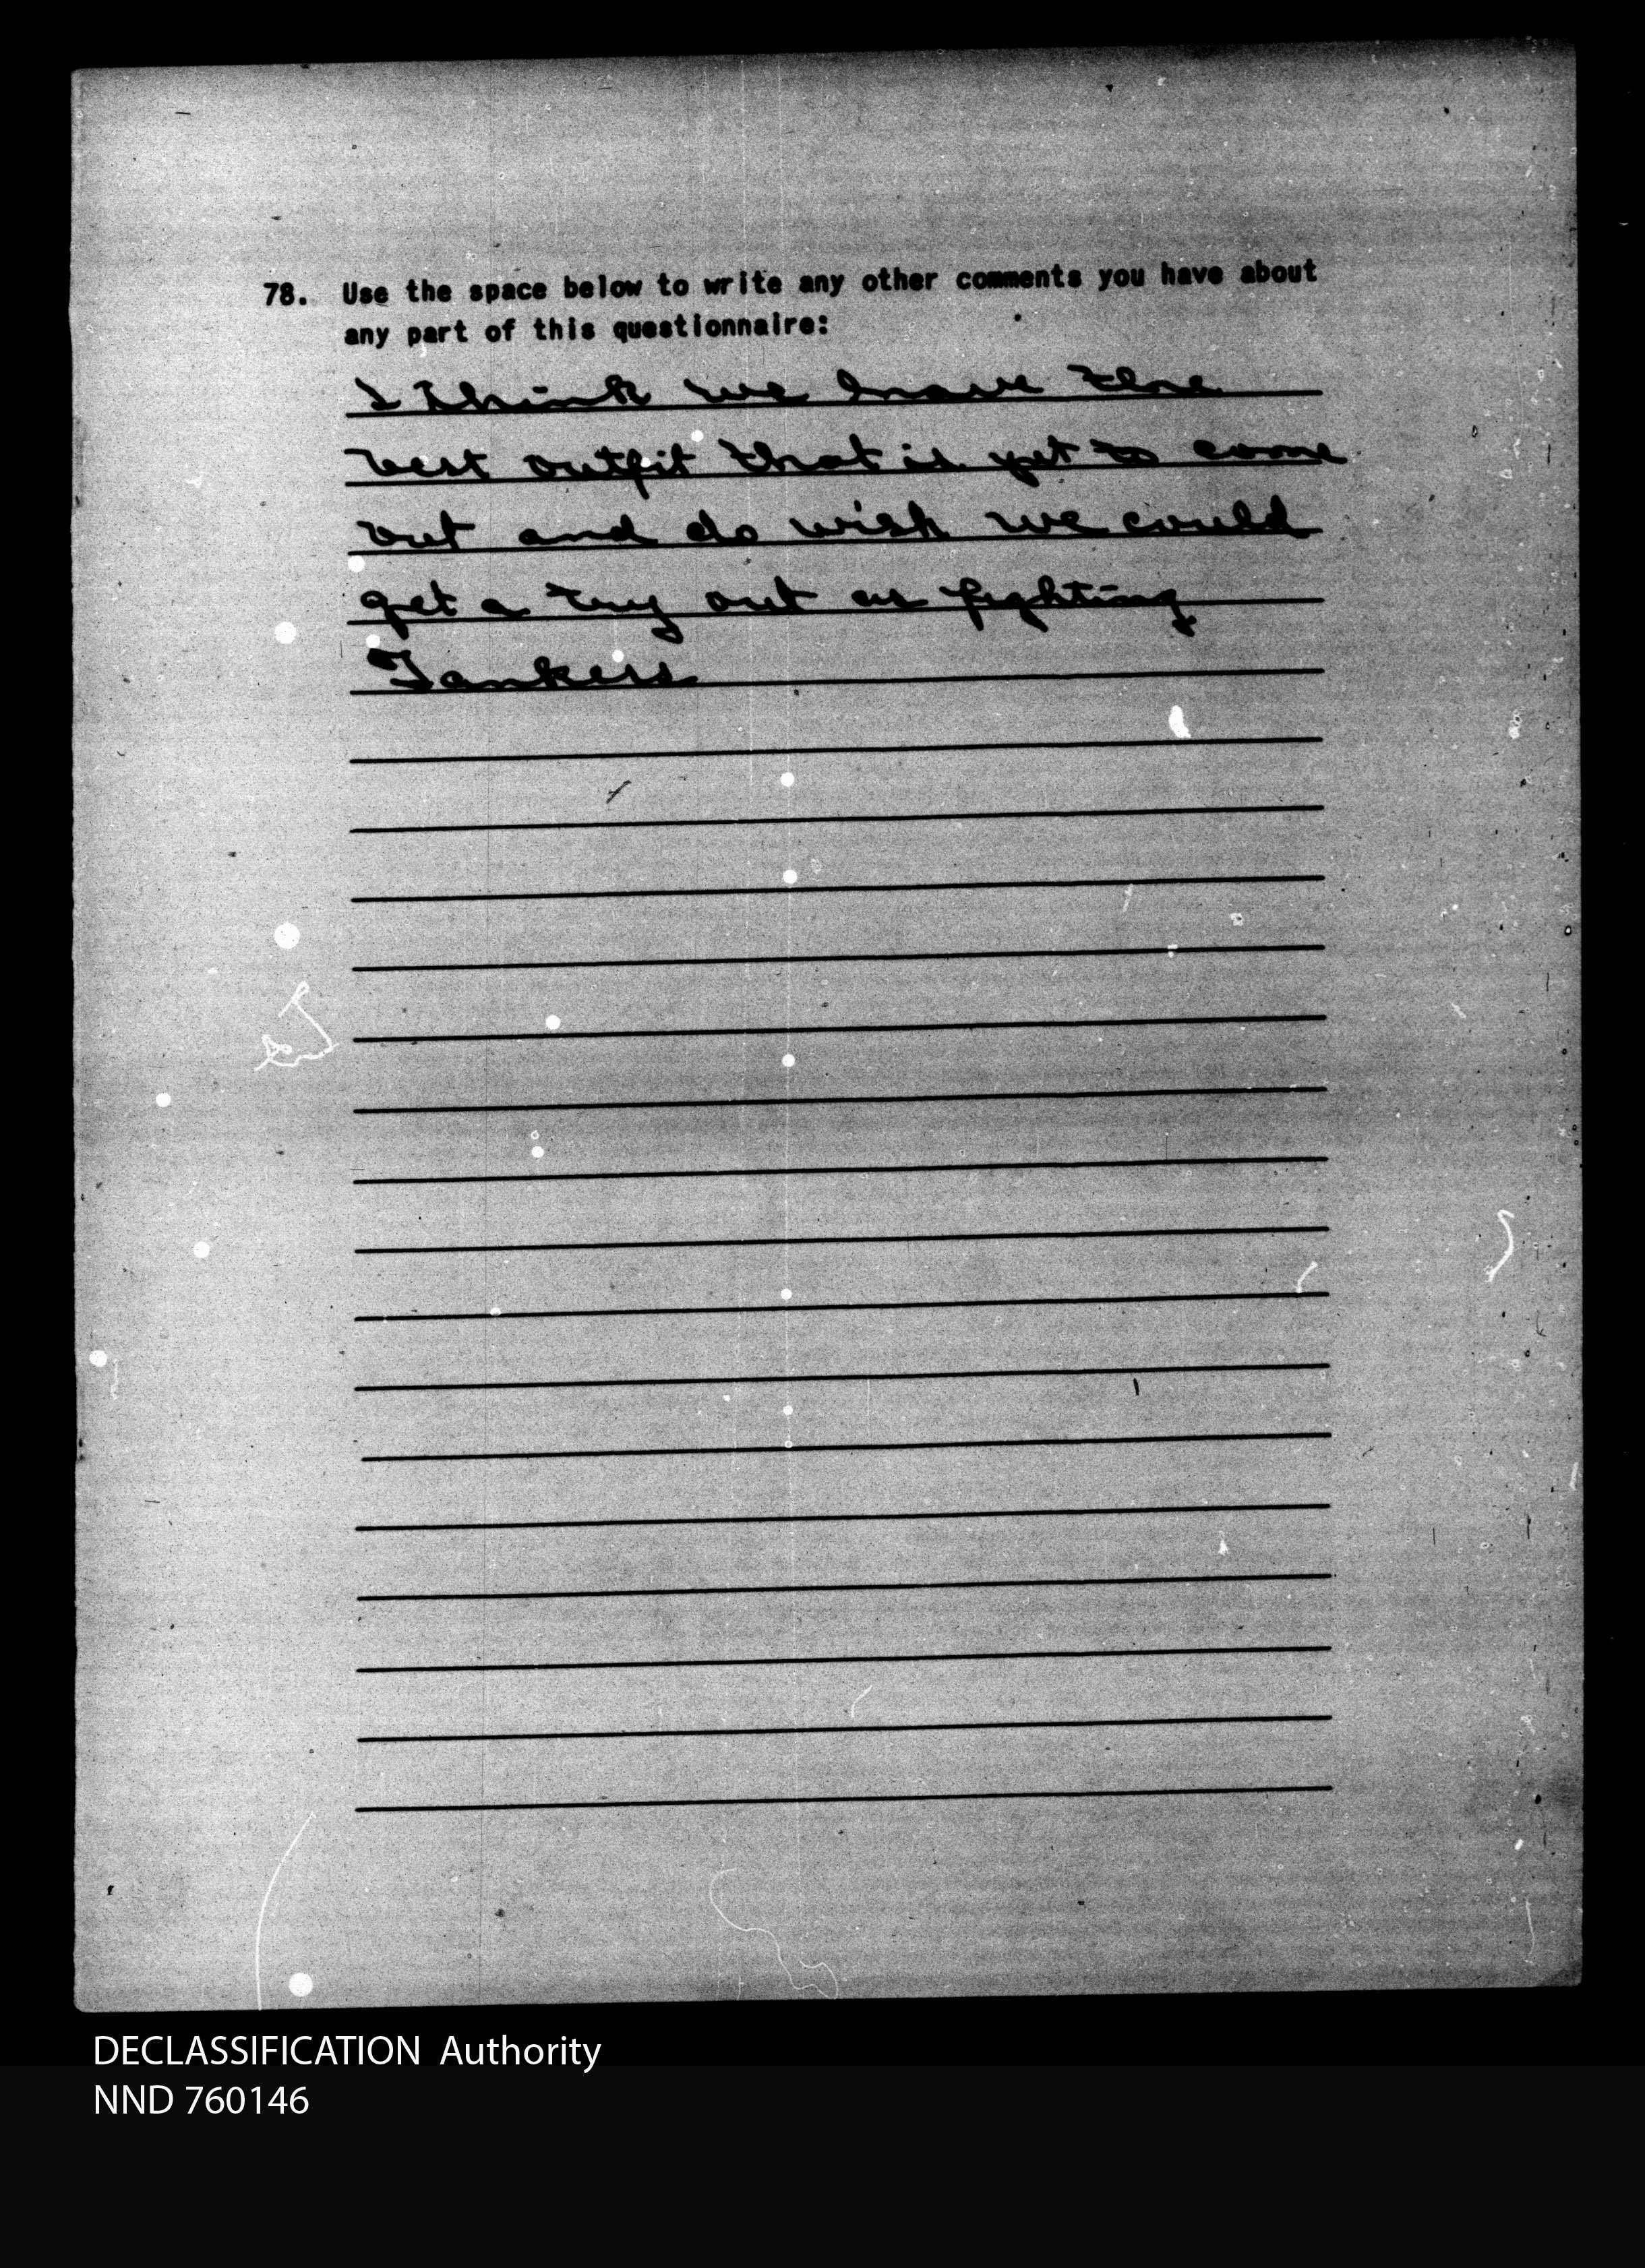 78. Use the space below to write any other comments you have about
any part of this questionnaire:
I think we have the
best outfit that is yet to come
out and do wish we could
get a try out as fighting
Tankers
DECLASSIFICATION Authority
NND 760146